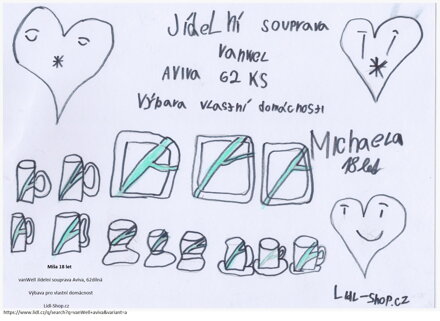 JídeLNí souprava
vanwel
AVIVA 62 KS
Výbava vlastní domácnosti
Michaela
18 let
LIDL-Shop.cz
Míša 18 let
vanWell jídelní souprava Aviva, 62dílná
Výbava pro vlastní domácnost
Lidl-Shop.cz
https://www.lidl.cz/q/search?q=vanWell+aviva&variant=a